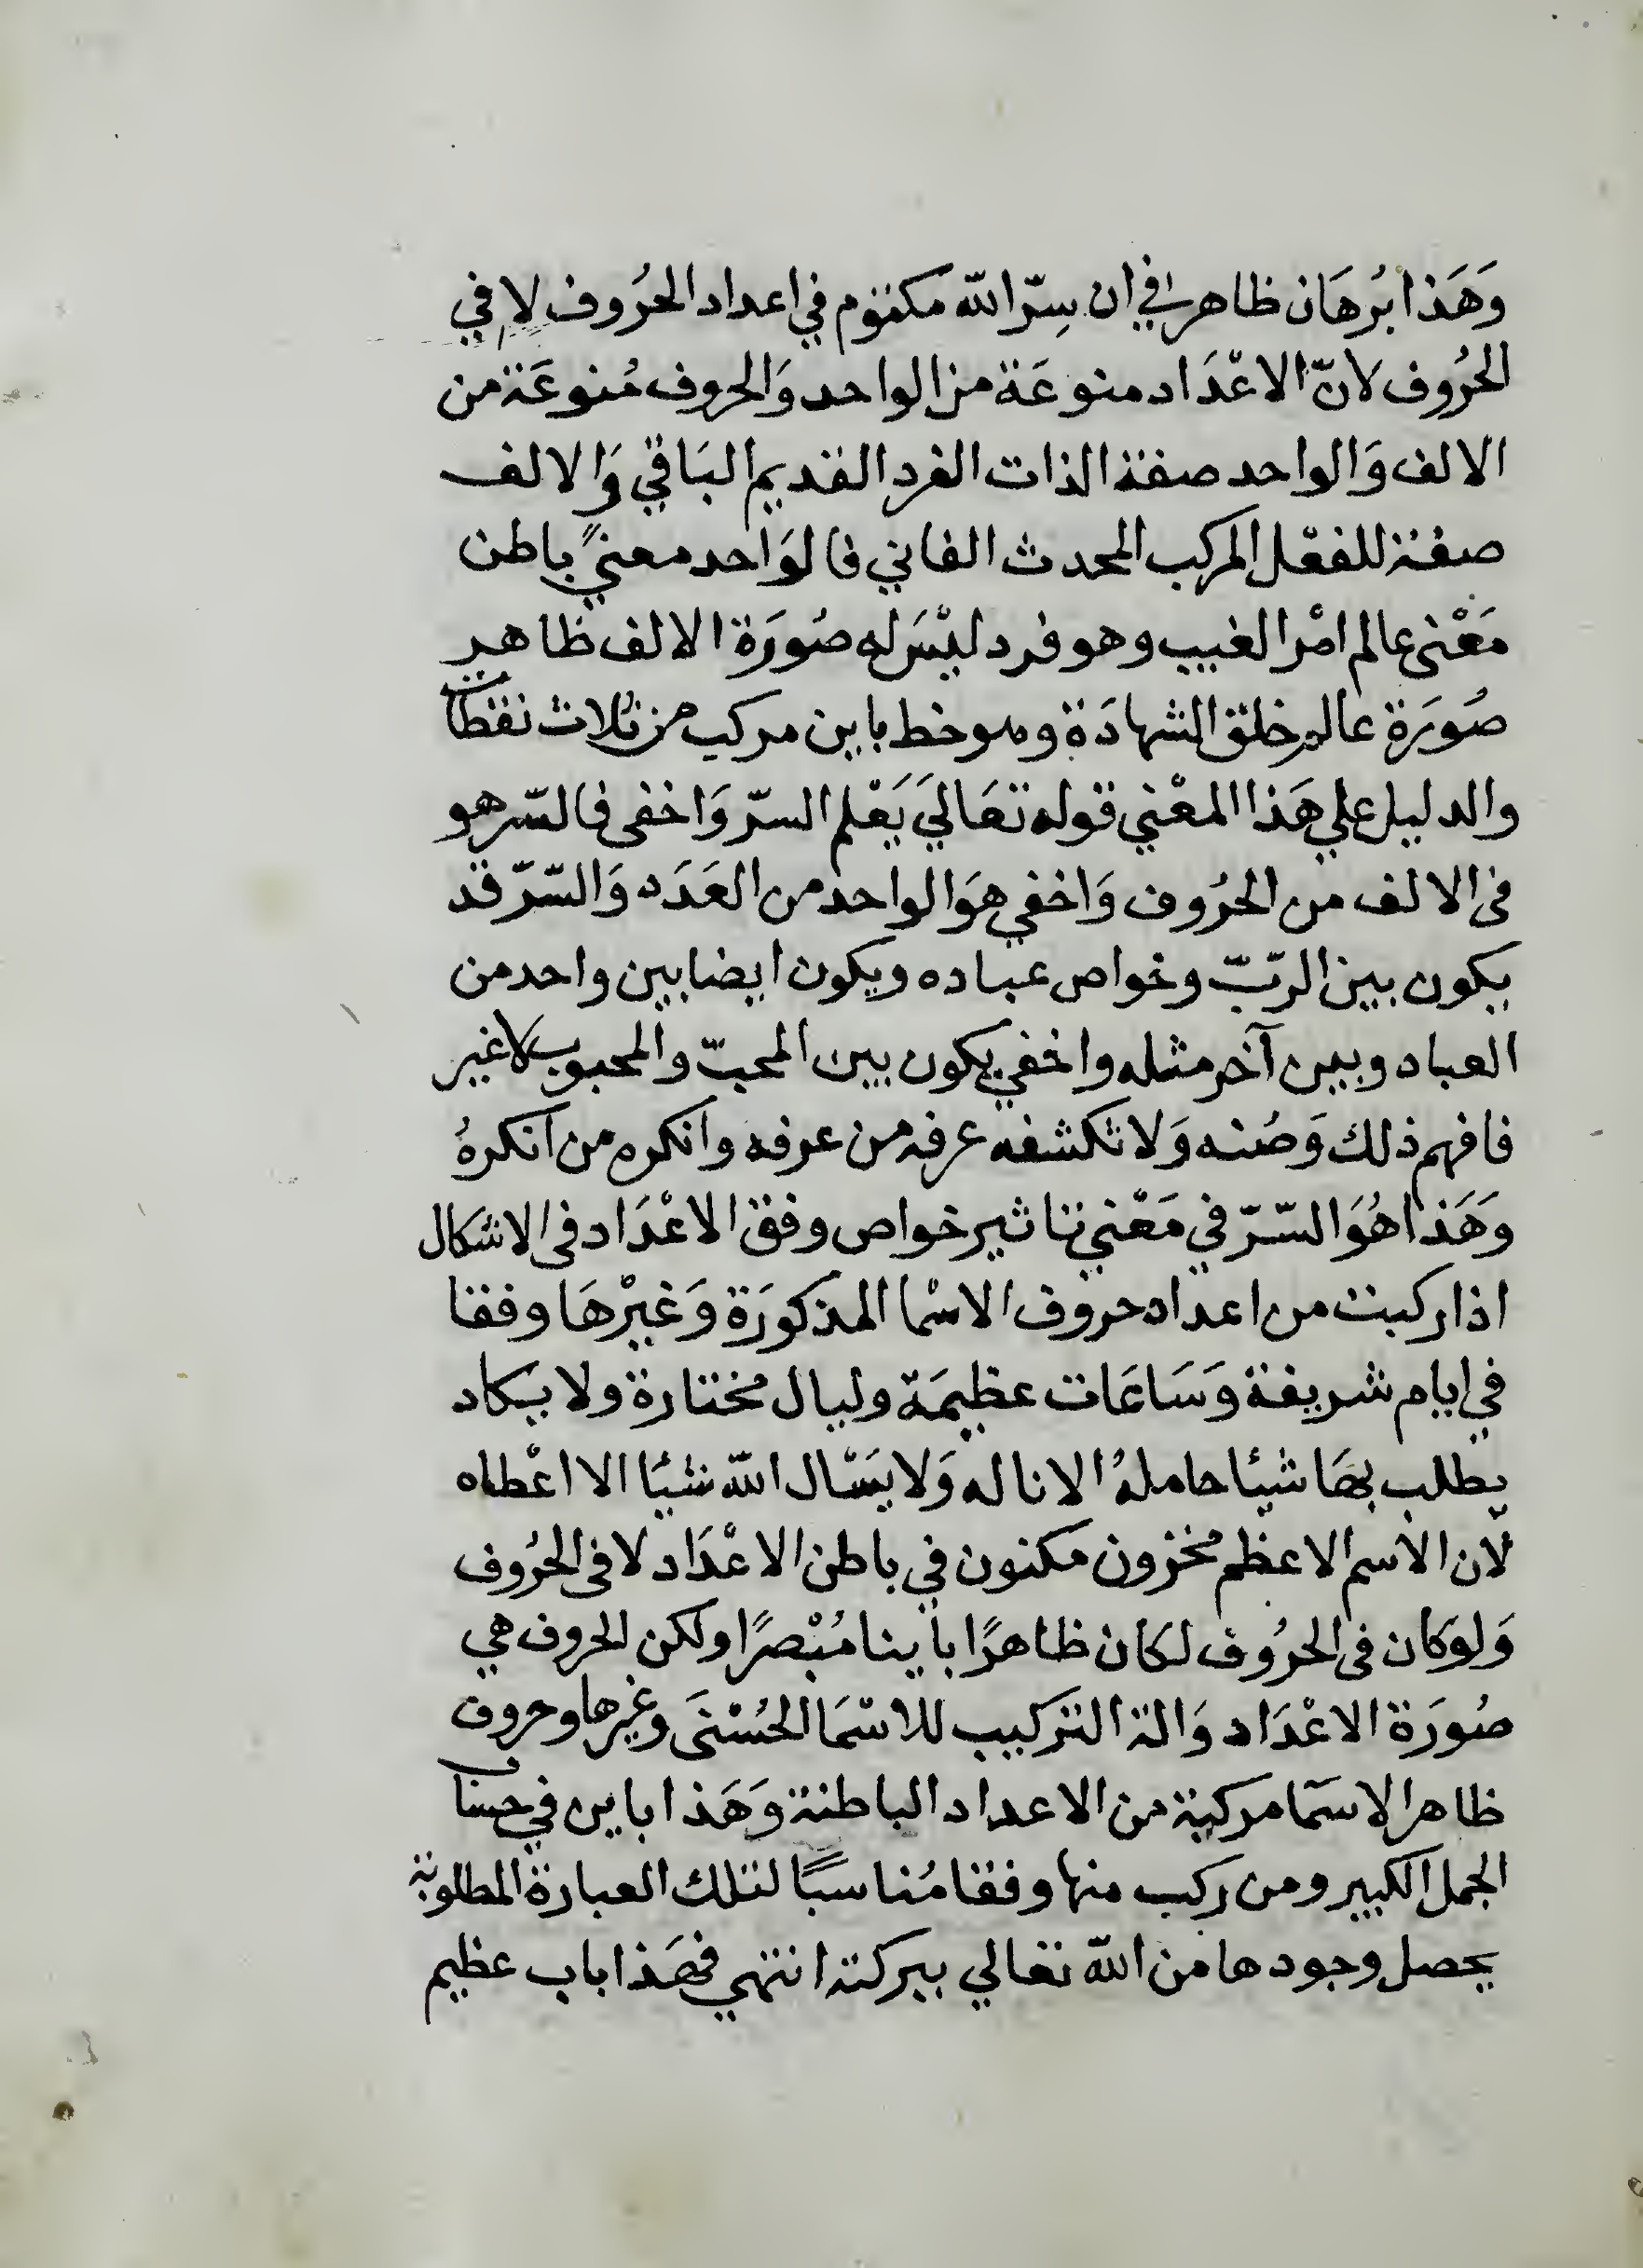 وَهَذا بُرهَان ظاهر في ان سِرّ الله مكتوم في اعداد الحُروف لا في
الحُروف لانّ الاعْدَاد منوعَة من الواحد وَالحروف مُنوعَة من
الالف وَالواحد صفة الذات الفرد القديم البَاقي وَالالف
صفة للفعْل المركب المحدث الفاني فالوَاحد معنيً باطن
مَعْنى عالم امْر الغيب وهو فرد ليْسَ له صُورَة الالف ظاهر
صُورَة عالم خلق الشهادَة وهو خط باين مركب من ثلاث نقط
والدليل علي هَذا المعْني قوله تعَاليَ يَعْلم السرّ وَاخفى فالسّر هو
فى الالف من الحُروف وَاخفي هوَ الواحد من العَدَد وَالسّرّ قد
يكون بين الربّ وخواص عباده ويكون ايضا بين واحد من
العباد وبين آخر مثله واخفي يكون بين المحبّ والمحبوب لاغير
فافهم ذلك وَصُنه وَلا تكشفه عرفه من عرفه وانكره من انكرهُ
وَهَذا هُوَ السّرّ في مَعْني تاثير خواص وفق الاعْدَاد فى الاشكال
اذا ركبت من اعداد حروف الاسْما المذكورَة وَغيْرهَا وفقا
في ايام شريفة وَسَاعَات عظيمَة وليال مختارة ولا يكاد
يطلب بهَا شيئا حاملهُ الا ناله وَلا يَسْال الله شيئا الا اعْطاه
لان الاسم الاعظم مخزون مكنون في باطن الاعْدَاد لا فى الحُروف
وَلو كان فى الحرُوف لكان ظاهرًا باينا مُبْصرًا ولكن الحروف هي
صُورَة الاعْدَاد وَالة التركيب للاسْمَا الحُسْنَى وغيرها وحروف
ظاهر الاسمَا مركبة من الاعداد الباطنة وَهَذا باين في حساب
الجمل الكبير ومن ركب منها وفقا مُناسبًا لتلك العبارة المطلوبة
يحصل وجودها من الله تعالي ببركته انتهي فهَذا باب عظيم